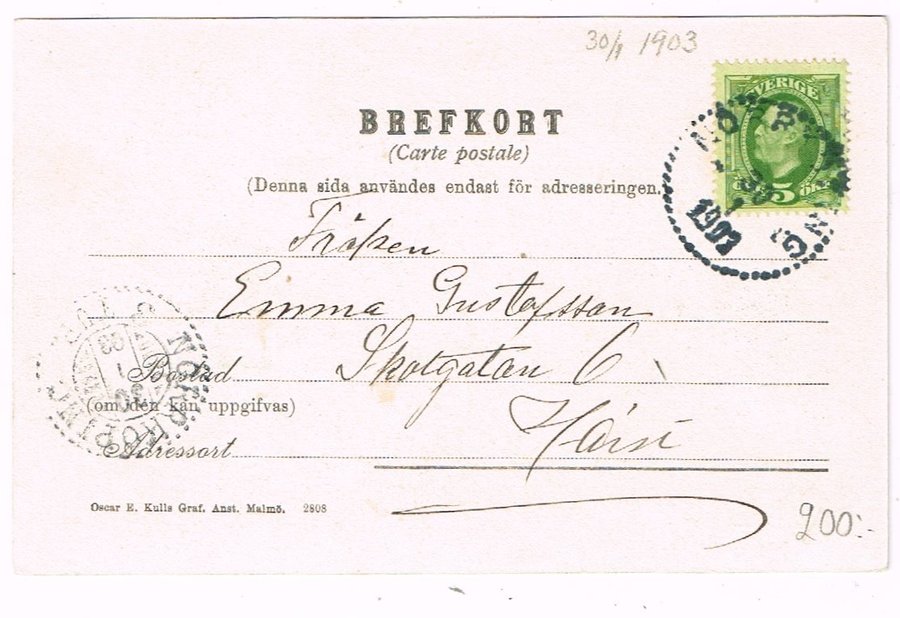 30/1 1903
SVERIGE
5 ÖRE
1903
BREFKORT
(Carte postale)
(Denna sida användes endast för adresseringen.
Fröken
Emma Gustafsson
Skolgatan 6
NORRKÖPING
03
Bostad
(om den kan uppgifvas)
Adressort
Oscar E. Kulls Graf. Anst. Malmö. 2808
200:-